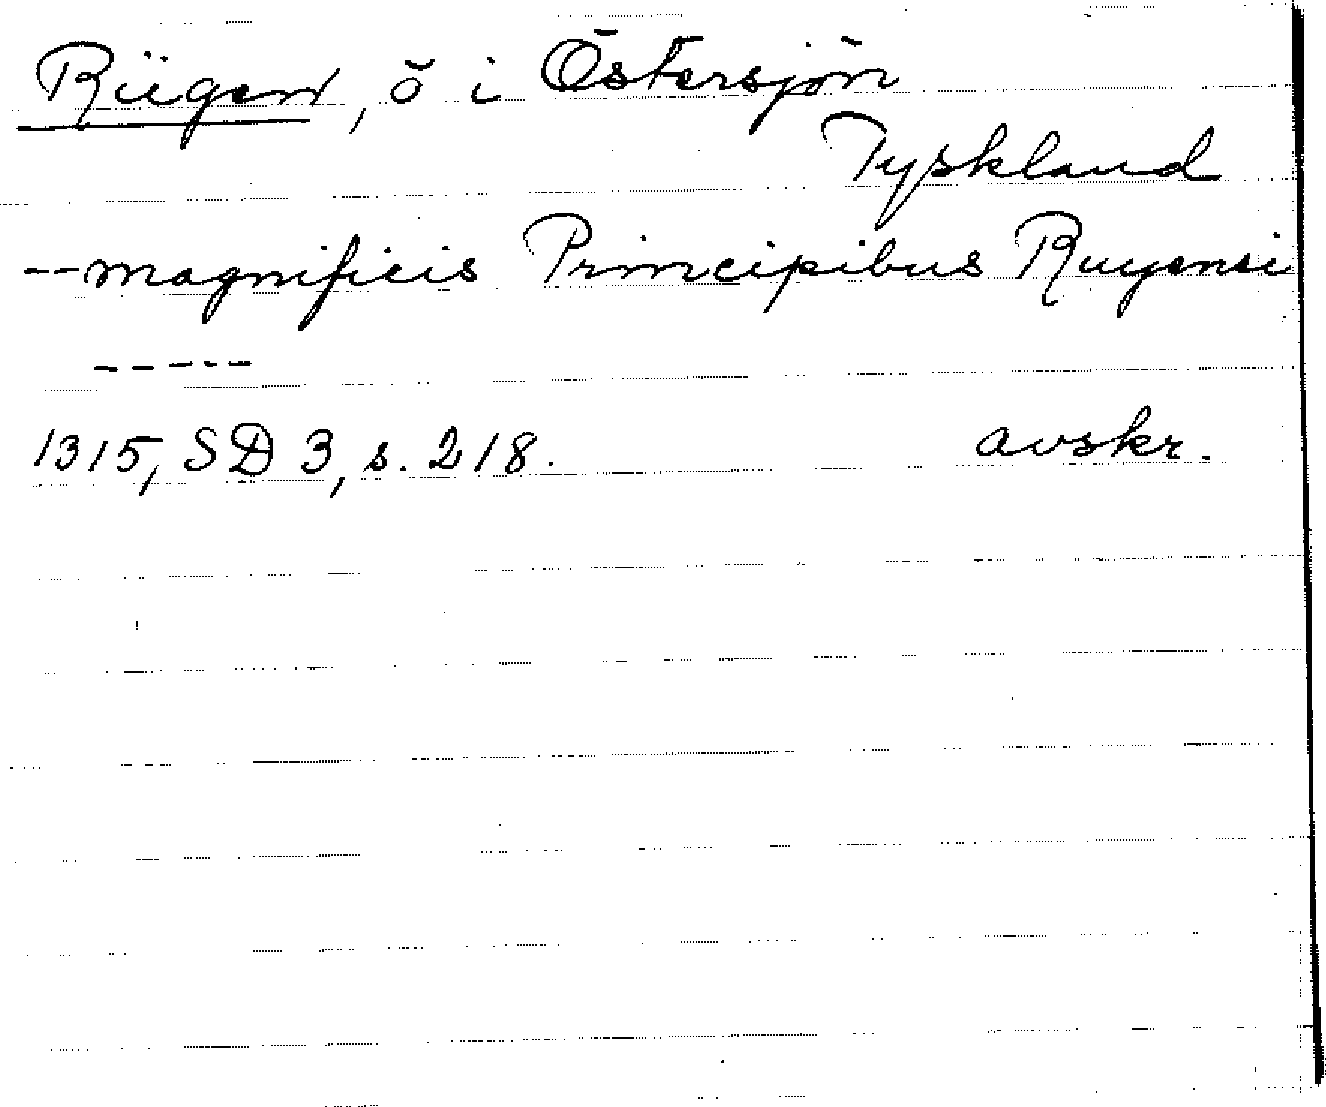 Rügen, ö i Östersjön
Tyskland
-- magnificis Principibus Ruyensi
-----
1315, SD 3, s. 218. avskr.